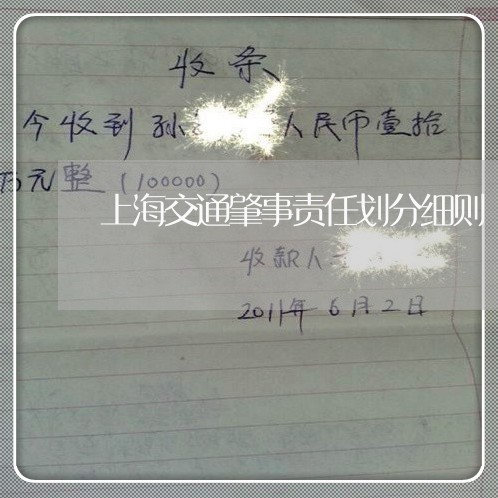 收条
今收到孙 人民币壹拾
万元整(100000)
上海交通肇事责任划分细则
收款人
2011年6月2日